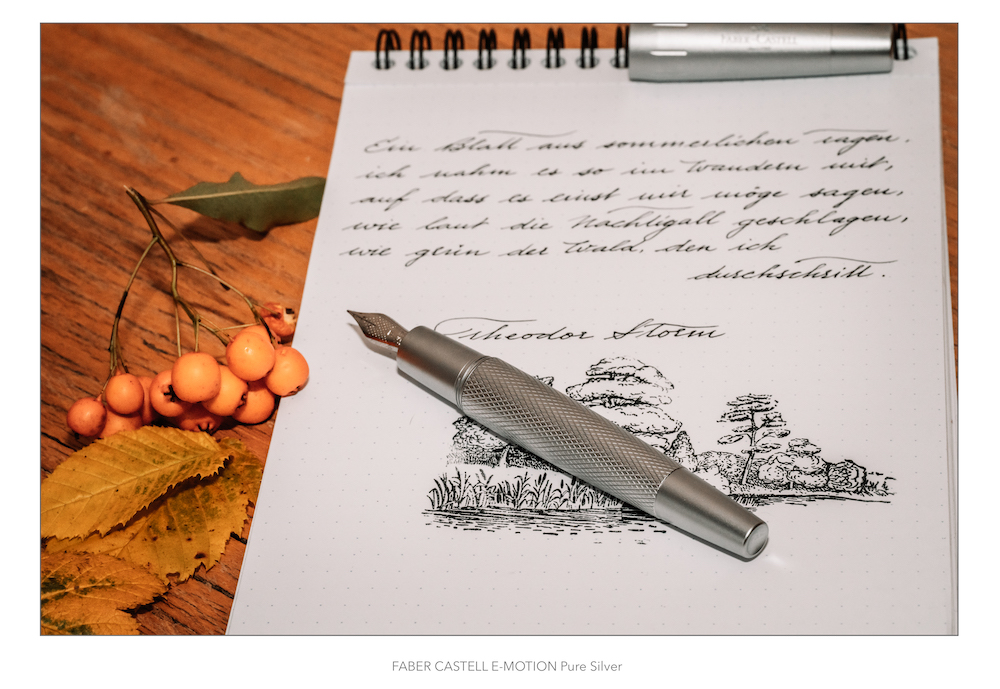 FABER-CASTELL
Ein Blatt aus sommerlichen Tagen.
ich nahm es so im Wandern mit,
auf dass es einst mir möge sagen,
wie laut die Nachtigall geschlagen,
wie grün der Wald, den ich
durchschritt.
Theodor Storm
FABER CASTELL E-MOTION Pure Silver